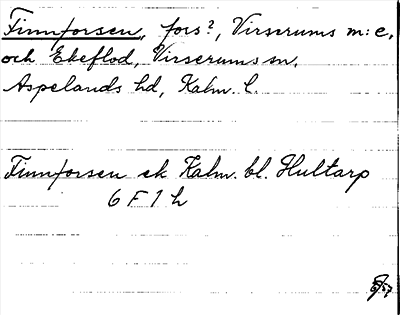 Finnforsen, fors?, Virserums m:e,
och Ekeflod, Virserums sn,
Aspelands hd, Kalm. l.
Finnforsen ek Kalm. bl. Hultarp
6 F 1 h